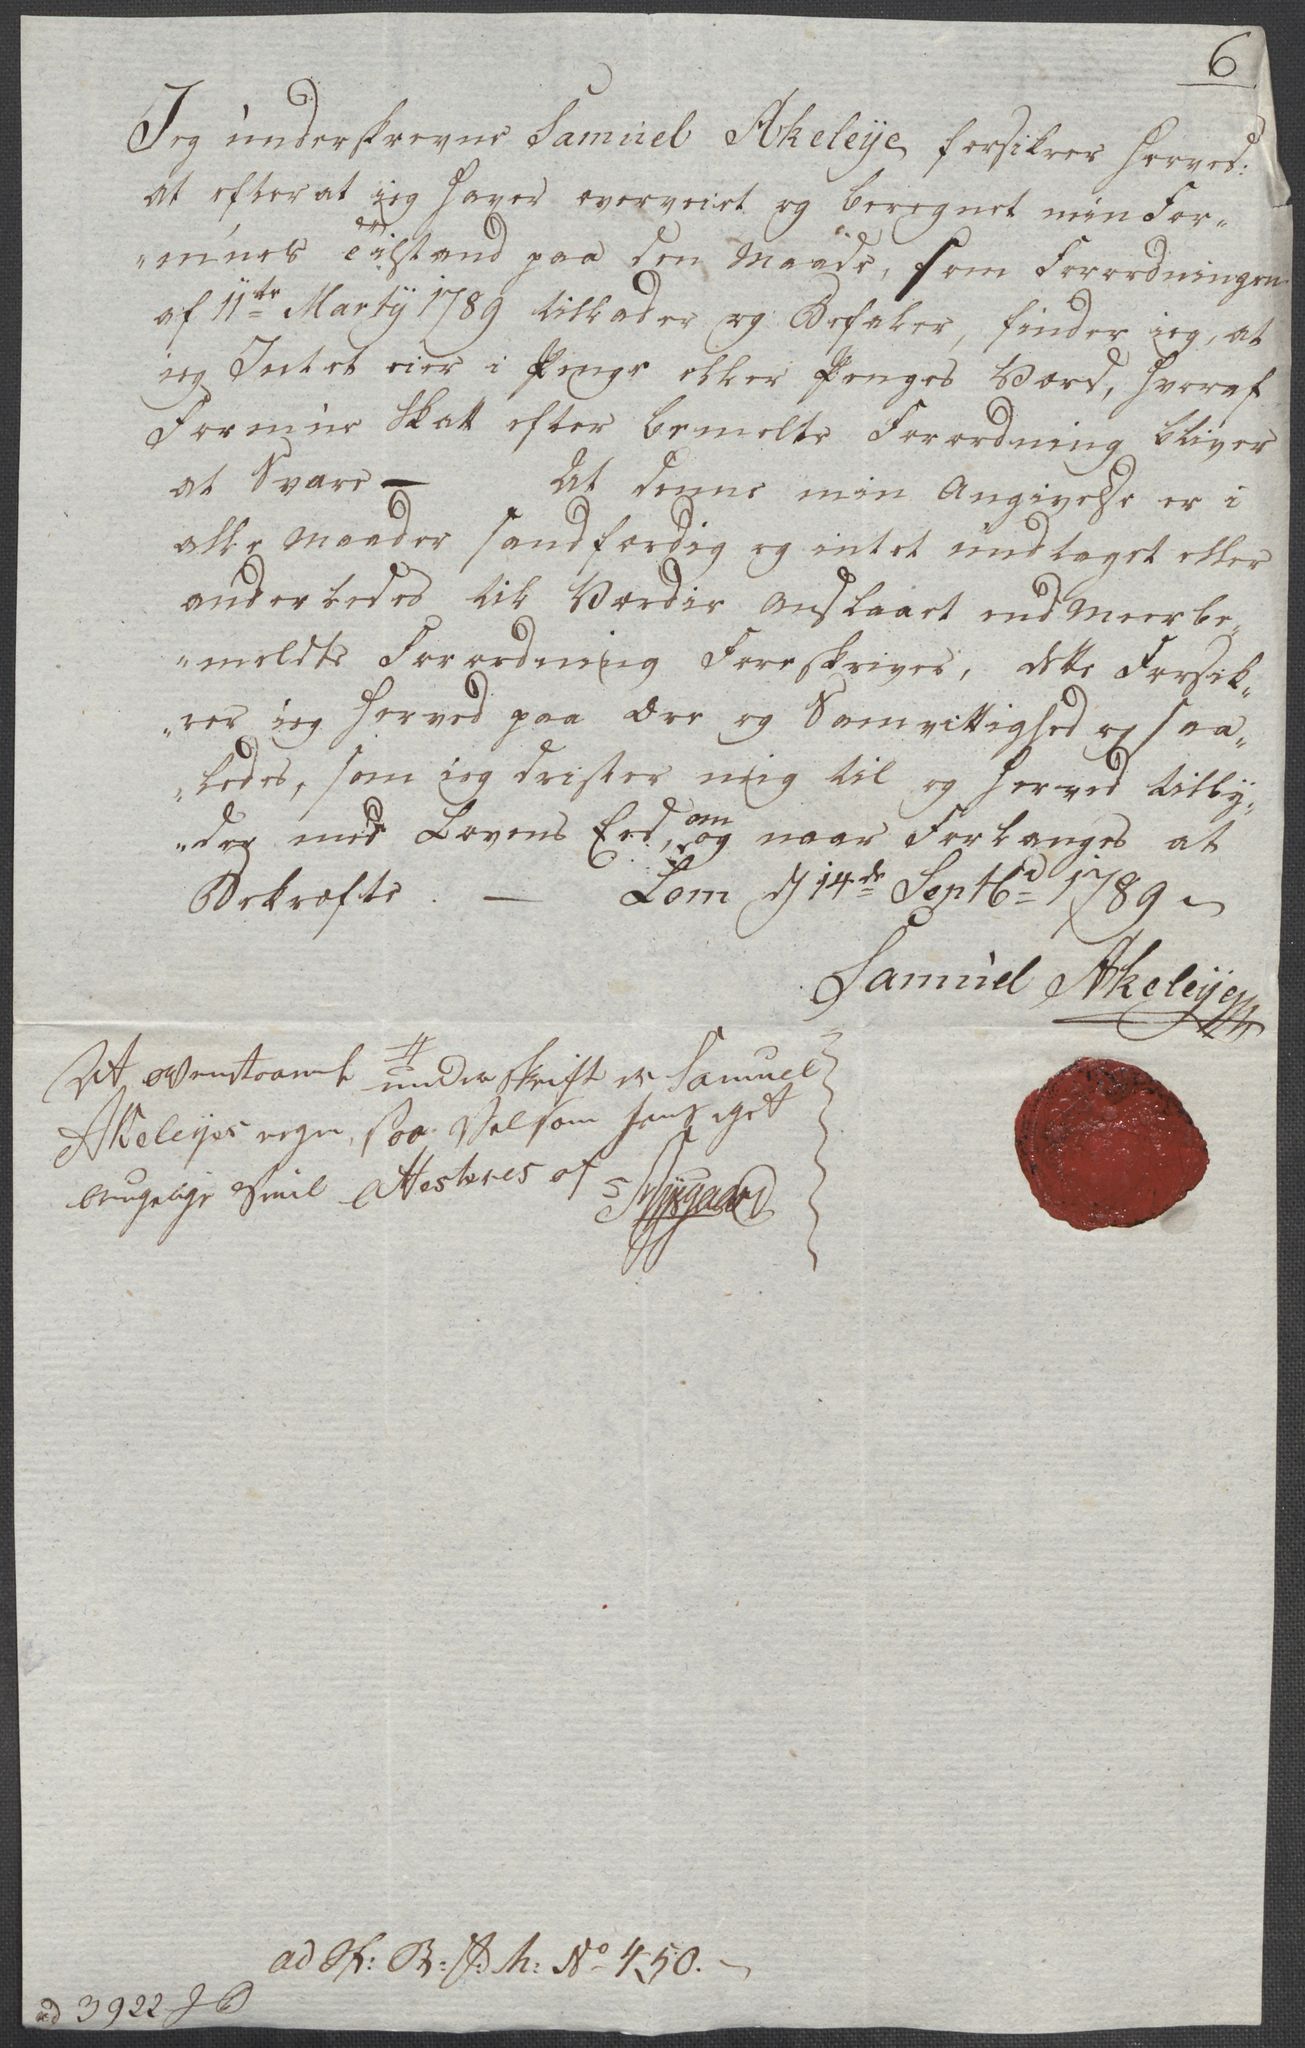 6
Jeg underskrevne Samuel Akeleÿe forsikrer herved:
at efterat ieg haver overveiet og beregnet min For„
„mues tilstand paa den Maade, som Forordningen
af 11te Martÿ 1789 tillader og Befaler, finder ieg, at
ieg Intet eier i Penge eller Penges Værd, hvoraf
Formue Skatt efter bemelte Forordning bliver
at Svare — At denne min Angivelse er i
alle Maader sandfærdig og intet undtaget eller
anderledes til Værdie Anslaaet end Meerbe„
„meldte Forordning Foreskriver, dette Forsik„
„rer ieg herved paa Ære og Samvittighed og saa„
„ledes, som ieg drister mig til og herved tilbÿ„
„der med Lovens Eed, om og naar Forlanges at
Bekræfte. — Lom d 14de Septbr 1789
Samuel Akeleÿe
At ovenstaaende underskrift er Samuel
Akeleyes egen, saa Vel som hans eget
brugelige Seil Attesteres af
ad No 450.
ad 3922